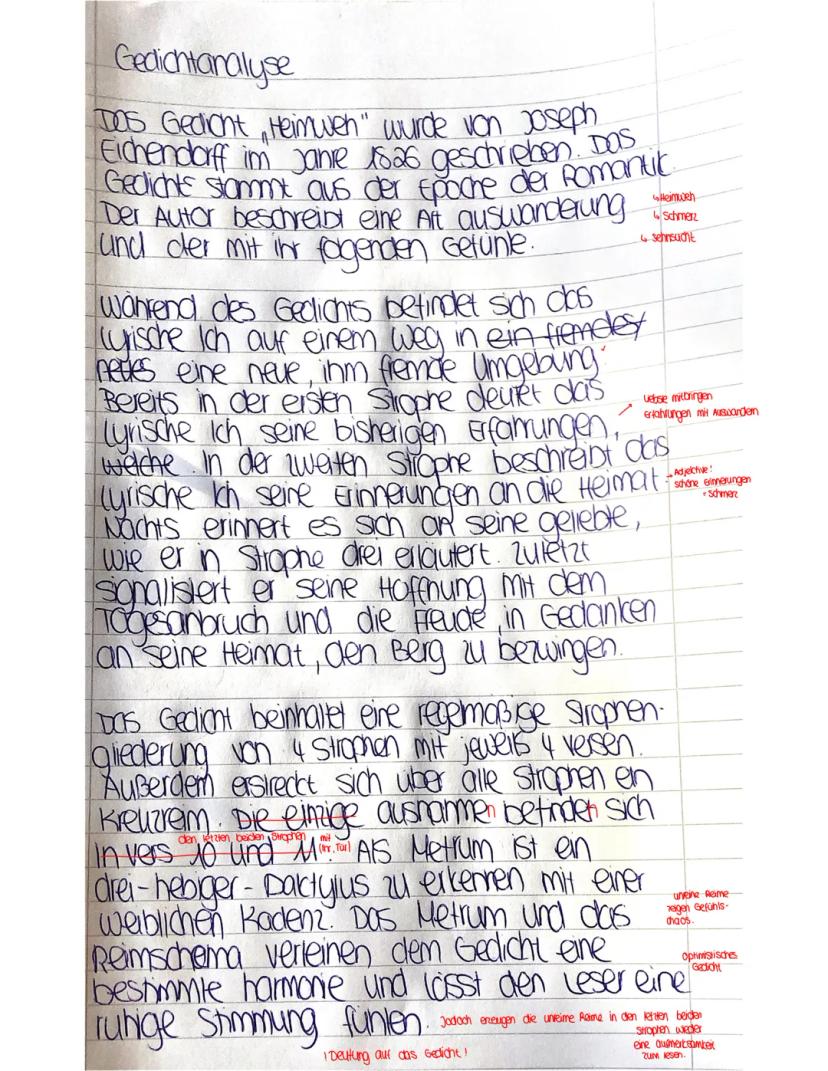 Gedichtanalyse
Das Gedicht „Heimweh" wurde von Joseph
Eichendorff im Jahre 1826 geschrieben. Das
Gedichts stammt aus der Epoche der Romantik.
Der Autor beschreibt eine Art auswanderung
↳ Heimweh
↳ Schmerz
und der mit ihr folgenden Gefühle.
↳ Sehnsucht
Während des Gedichts befindet sich das
lyrische Ich auf einem Weg in ein fremdes
neues eine neue, ihm fremde Umgebung.
Bereits in der ersten Strophe deutet das
Liebste mitbringen
Erfahrungen mit Auswandern
lyrische Ich seine bisherigen Erfahrungen,
welche. In der zweiten Strophe beschreibt das
lyrische Ich seine Erinnerungen an die Heimat.
→ Adjektive!
schöne Erinnerungen
+ Schmerz
Nachts erinnert es sich an seine geliebte,
wie er in Strophe drei erläutert. Zuletzt
signalisiert er seine Hoffnung mit dem
Tagesanbruch und die Freude, in Gedanken
an seine Heimat, den Berg zu bezwingen.
Das Gedicht beinhaltet eine regelmäßige Strophen-
gliederung von 4 Strophen mit jeweils 4 Versen.
Außerdem erstreckt sich über alle Strophen ein
Kreuzreim. Die einzige ausnahmen befinden sich
den letzten beiden Strophen mit
(Ihr, Tür)
in Vers 10 und 11. Als Metrum ist ein
drei-hebiger-Daktylus zu erkennen mit einer
weiblichen Kadenz. Das Metrum und das
unreine Reime
zeigen Gefühls-
chaos.
Reimschema verleihen dem Gedicht eine
optimistisches
Gedicht
bestimmte harmonie und lässt den Leser eine
ruhige Stimmung fühlen. Jedoch erzeugen die unreine Reime in den letzten beiden
Strophen wieder
eine aufmerksamkeit
zum lesen.
! Deutung auf das Gedicht !